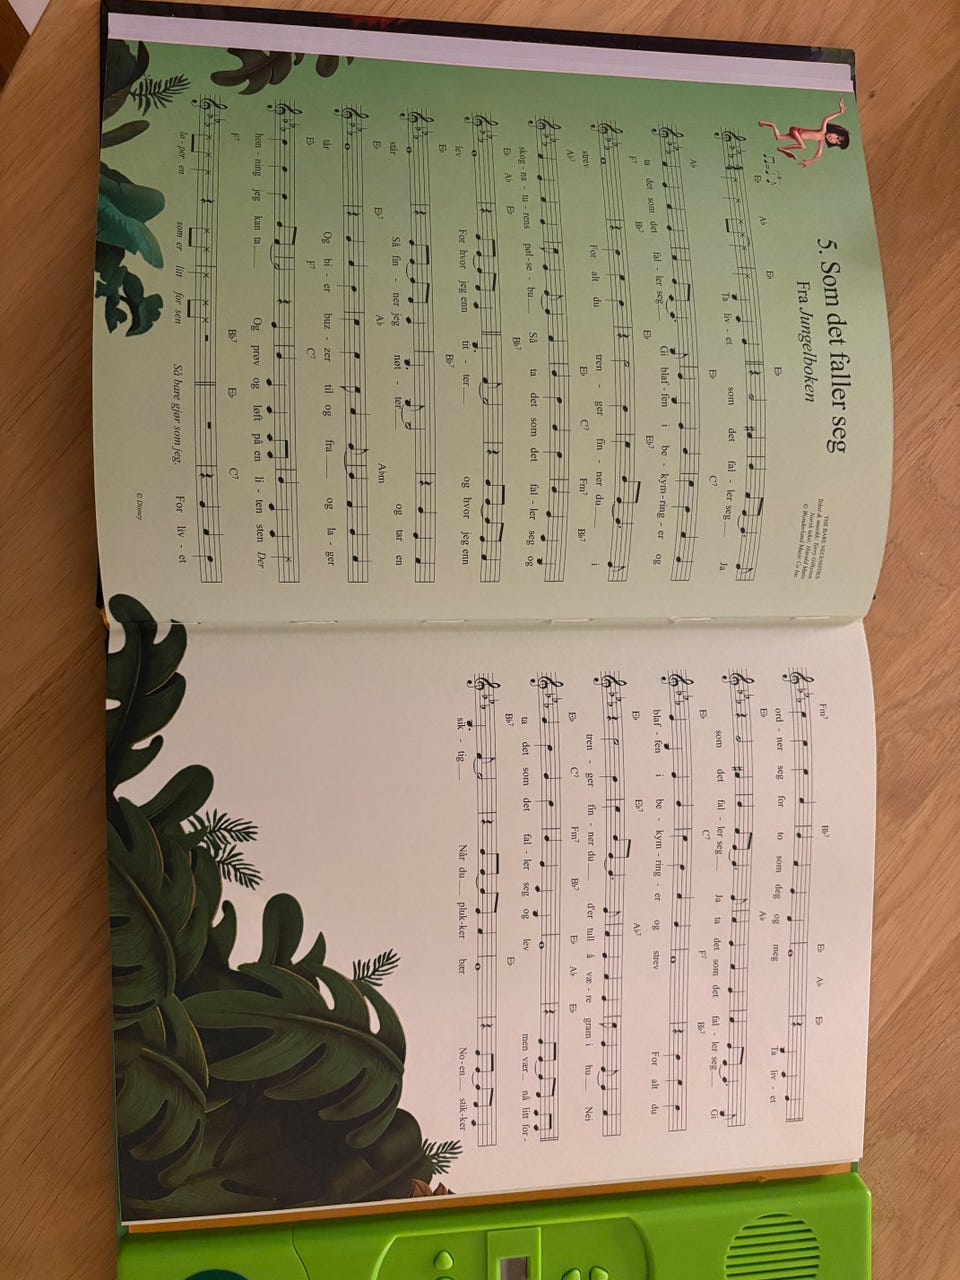 5. Som det faller seg
Fra Jungelboken
THE BARE NECESSITIES
Tekst & musikk: Terry Gilkyson
Norsk tekst: Harald Mæle
© Wonderland Music Co Inc.
3
E♭ A♭ E♭ E♭
Ta liv - et som det fal - ler seg Ja
A♭ E♭ C⁷
ta det som det fal - ler seg Gi blaf - fen i be - kym - ring - er og
F⁷ B♭⁷ E♭ E♭⁷
strev For alt du tren - ger fin - ner du i
A♭⁷ E♭ C⁷ Fm⁷ B♭⁷
skog - na - tu - rens pøl - se - bu Så ta det som det fal - ler seg og
E♭ A♭ E♭ B♭⁷
lev For hvor jeg enn tit - ter og hvor jeg enn
E♭ B♭⁷
står Så fin - ner jeg nøt - ter og tar en
E♭ E♭⁷ A♭ A♭m
tår Og bi - er buz - zer til og fra og la - ger
E♭ F⁷ C⁷
hon - ning jeg kan ta Og prøv og løft på en li - ten sten Der
F⁷ B♭⁷ E♭ C⁷
la - per en som er lin for sen Så bare gjør som jeg. For liv - et
© Disney
Fm⁷ B♭⁷ E♭ A♭ E♭
ord - ner seg for to som deg og meg Ta liv - et
E♭ A♭
som det fal - ler seg Ja ta det som det fal - ler seg Gi
E♭ C⁷ F⁷ B♭⁷
blaf - fen i be - kym - ring - er og strev For alt du
E♭ E♭⁷ A♭⁷
tren - ger fin - ner du d'er tull å væ - re gram i hu Nei
E♭ C⁷ Fm⁷ B♭⁷ E♭ A♭ E♭
ta det som det fal - ler seg og lev men vær nå litt for -
B♭⁷ E♭
sik - tig Når du pluk - ker bær No - en stik - ker